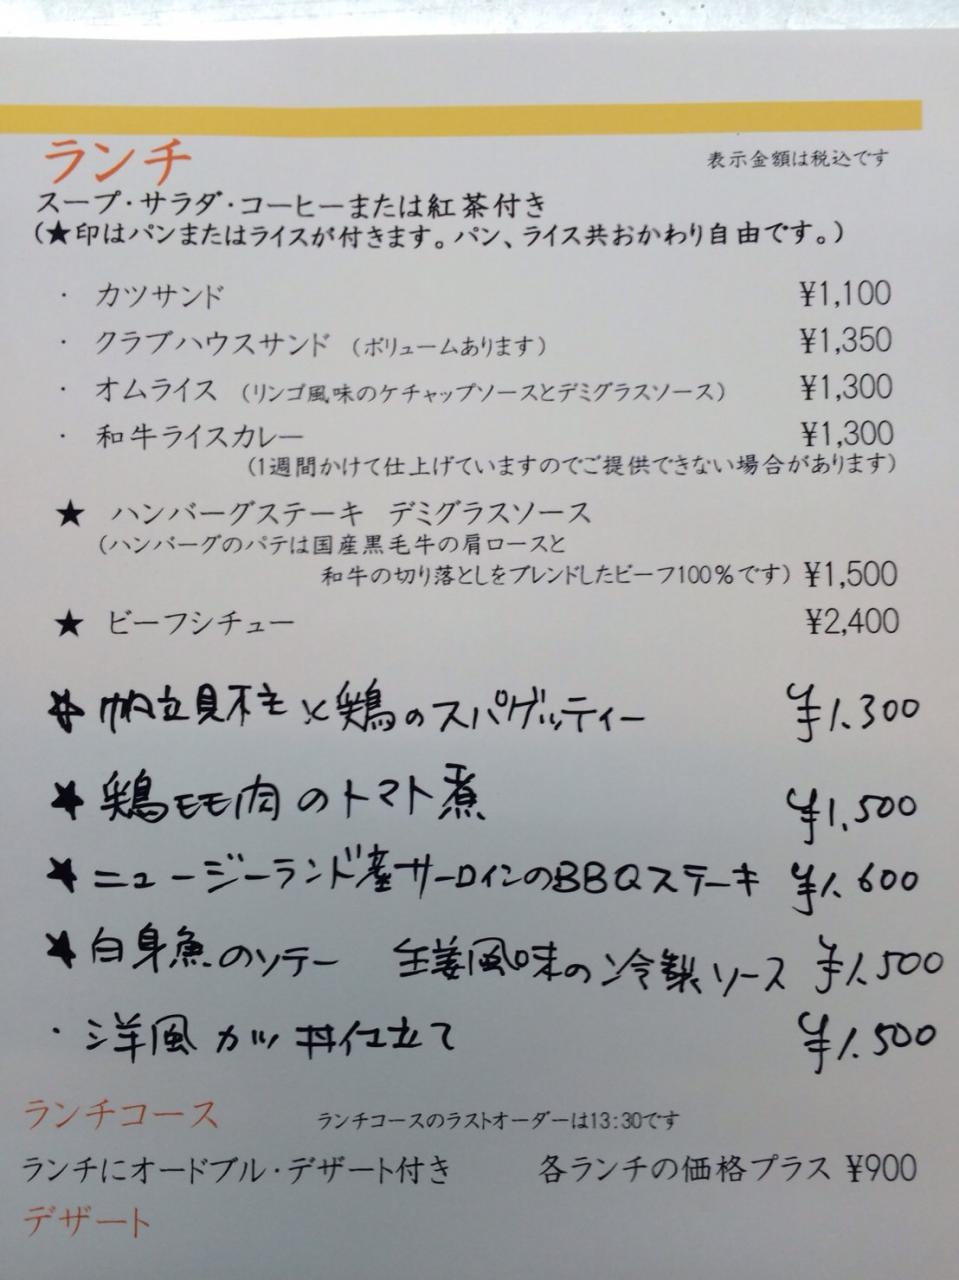 ランチ
表示金額は税込です
スープ・サラダ・コーヒーまたは紅茶付き
(★印はパンまたはライスが付きます。パン、ライス共おかわり自由です。)
・ カツサンド ¥1,100
・ クラブハウスサンド (ボリュームあります) ¥1,350
・ オムライス (リンゴ風味のケチャップソースとデミグラスソース) ¥1,300
・ 和牛ライスカレー ¥1,300
(1週間かけて仕上げていますのでご提供できない場合があります)
★ ハンバーグステーキ デミグラスソース
(ハンバーグのパテは国産黒毛牛の肩ロースと
和牛の切り落としをブレンドしたビーフ100%です) ¥1,500
★ ビーフシチュー ¥2,400
★ 帆立貝柱と鶏のスパゲッティー ¥1.300
★ 鶏モモ肉のトマト煮 ¥1.500
★ ニュージーランド産サーロインのBBQステーキ ¥1.600
★ 白身魚のソテー 生姜風味の冷製ソース ¥1.500
・ 洋風カツ丼仕立て ¥1.500
ランチコース ランチコースのラストオーダーは13:30です
ランチにオードブル・デザート付き 各ランチの価格プラス ¥900
デザート